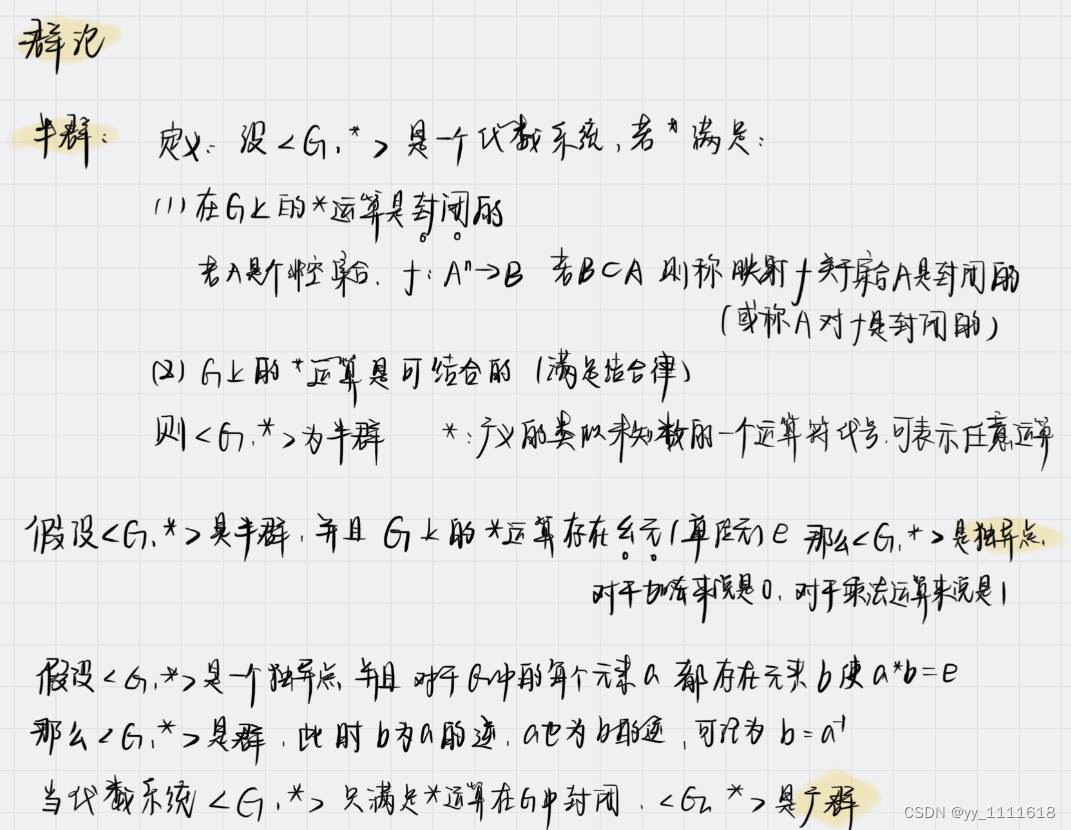 群论
半群： 定义：设<G,*>是一个代数系统,若*满足：
(1)在G上的*运算是封闭的
若A是个非空集合. f：Aⁿ→B 若B⊂A 则称映射f关于集合A是封闭的
(或称A对f是封闭的)
(2) G上的*运算是可结合的 (满足结合律)
则<G,*>为半群 *：广义的类似未知数的一个运算符代号.可表示任意运算
假设<G,*>是半群,并且G上的*运算存在幺元(单位元)e 那么<G,*>是独异点.
对于加法来说是0.对于乘法运算来说是1
假设<G,*>是一个独异点,并且 对于G中的每个元素a 都存在元素b使a*b=e
那么<G,*>是群,此时b为a的逆.a也为b的逆,可记为 b=a⁻¹
当代数系统<G,*>只满足*运算在G中封闭.<G,*>是广群
CSDN @yy_1111618